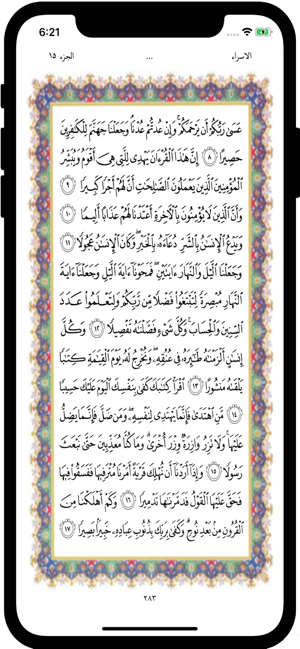 6:21
الاسراء ... الجزء ١٥
عَسَىٰ رَبُّكُمْ أَن يَرْحَمَكُمْ ۚ وَإِنْ عُدتُّمْ عُدْنَا ۘ وَجَعَلْنَا جَهَنَّمَ لِلْكَٰفِرِينَ
حَصِيرًا ٨ إِنَّ هَٰذَا ٱلْقُرْءَانَ يَهْدِى لِلَّتِى هِىَ أَقْوَمُ وَيُبَشِّرُ
ٱلْمُؤْمِنِينَ ٱلَّذِينَ يَعْمَلُونَ ٱلصَّٰلِحَٰتِ أَنَّ لَهُمْ أَجْرًا كَبِيرًا ٩
وَأَنَّ ٱلَّذِينَ لَا يُؤْمِنُونَ بِٱلْءَاخِرَةِ أَعْتَدْنَا لَهُمْ عَذَابًا أَلِيمًا ١٠
وَيَدْعُ ٱلْإِنسَٰنُ بِٱلشَّرِّ دُعَآءَهُۥ بِٱلْخَيْرِ ۖ وَكَانَ ٱلْإِنسَٰنُ عَجُولًا ١١
وَجَعَلْنَا ٱلَّيْلَ وَٱلنَّهَارَ ءَايَتَيْنِ ۖ فَمَحَوْنَآ ءَايَةَ ٱلَّيْلِ وَجَعَلْنَآ ءَايَةَ
ٱلنَّهَارِ مُبْصِرَةً لِّتَبْتَغُوا۟ فَضْلًا مِّن رَّبِّكُمْ وَلِتَعْلَمُوا۟ عَدَدَ
ٱلسِّنِينَ وَٱلْحِسَابَ ۚ وَكُلَّ شَىْءٍ فَصَّلْنَٰهُ تَفْصِيلًا ١٢ وَكُلَّ
إِنسَٰنٍ أَلْزَمْنَٰهُ طَٰٓئِرَهُۥ فِى عُنُقِهِۦ ۖ وَنُخْرِجُ لَهُۥ يَوْمَ ٱلْقِيَٰمَةِ كِتَٰبًا
يَلْقَىٰهُ مَنشُورًا ١٣ ٱقْرَأْ كِتَٰبَكَ كَفَىٰ بِنَفْسِكَ ٱلْيَوْمَ عَلَيْكَ حَسِيبًا
١٤ مَّنِ ٱهْتَدَىٰ فَإِنَّمَا يَهْتَدِى لِنَفْسِهِۦ ۖ وَمَن ضَلَّ فَإِنَّمَا يَضِلُّ
عَلَيْهَا ۚ وَلَا تَزِرُ وَازِرَةٌ وِزْرَ أُخْرَىٰ ۗ وَمَا كُنَّا مُعَذِّبِينَ حَتَّىٰ نَبْعَثَ
رَسُولًا ١٥ وَإِذَآ أَرَدْنَآ أَن نُّهْلِكَ قَرْيَةً أَمَرْنَا مُتْرَفِيهَا فَفَسَقُوا۟ فِيهَا
فَحَقَّ عَلَيْهَا ٱلْقَوْلُ فَدَمَّرْنَٰهَا تَدْمِيرًا ١٦ وَكَمْ أَهْلَكْنَا مِنَ
ٱلْقُرُونِ مِنۢ بَعْدِ نُوحٍ ۗ وَكَفَىٰ بِرَبِّكَ بِذُنُوبِ عِبَادِهِۦ خَبِيرًۢا بَصِيرًا ١٧
٢٨٣